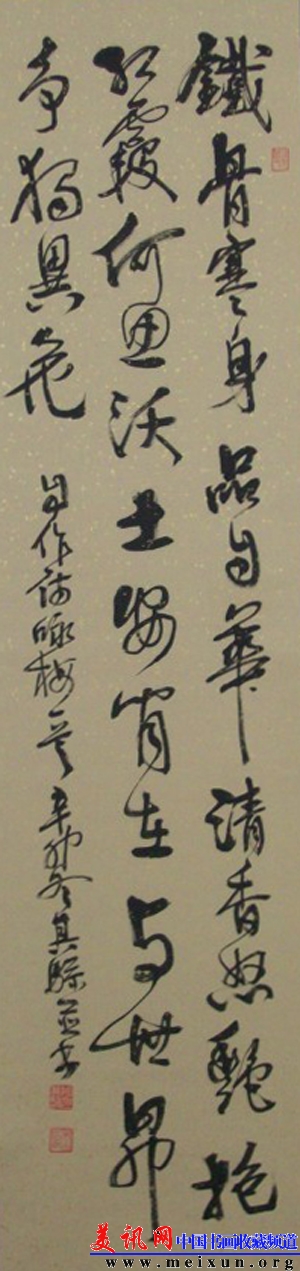 鐵骨寒身品自華清香怒艷抱
紅霞何思沃土安肯在与世昂
争獨異花
自作詩咏梅一首辛卯冬其
美讯网 中国书画收藏频道
www.meixun.org